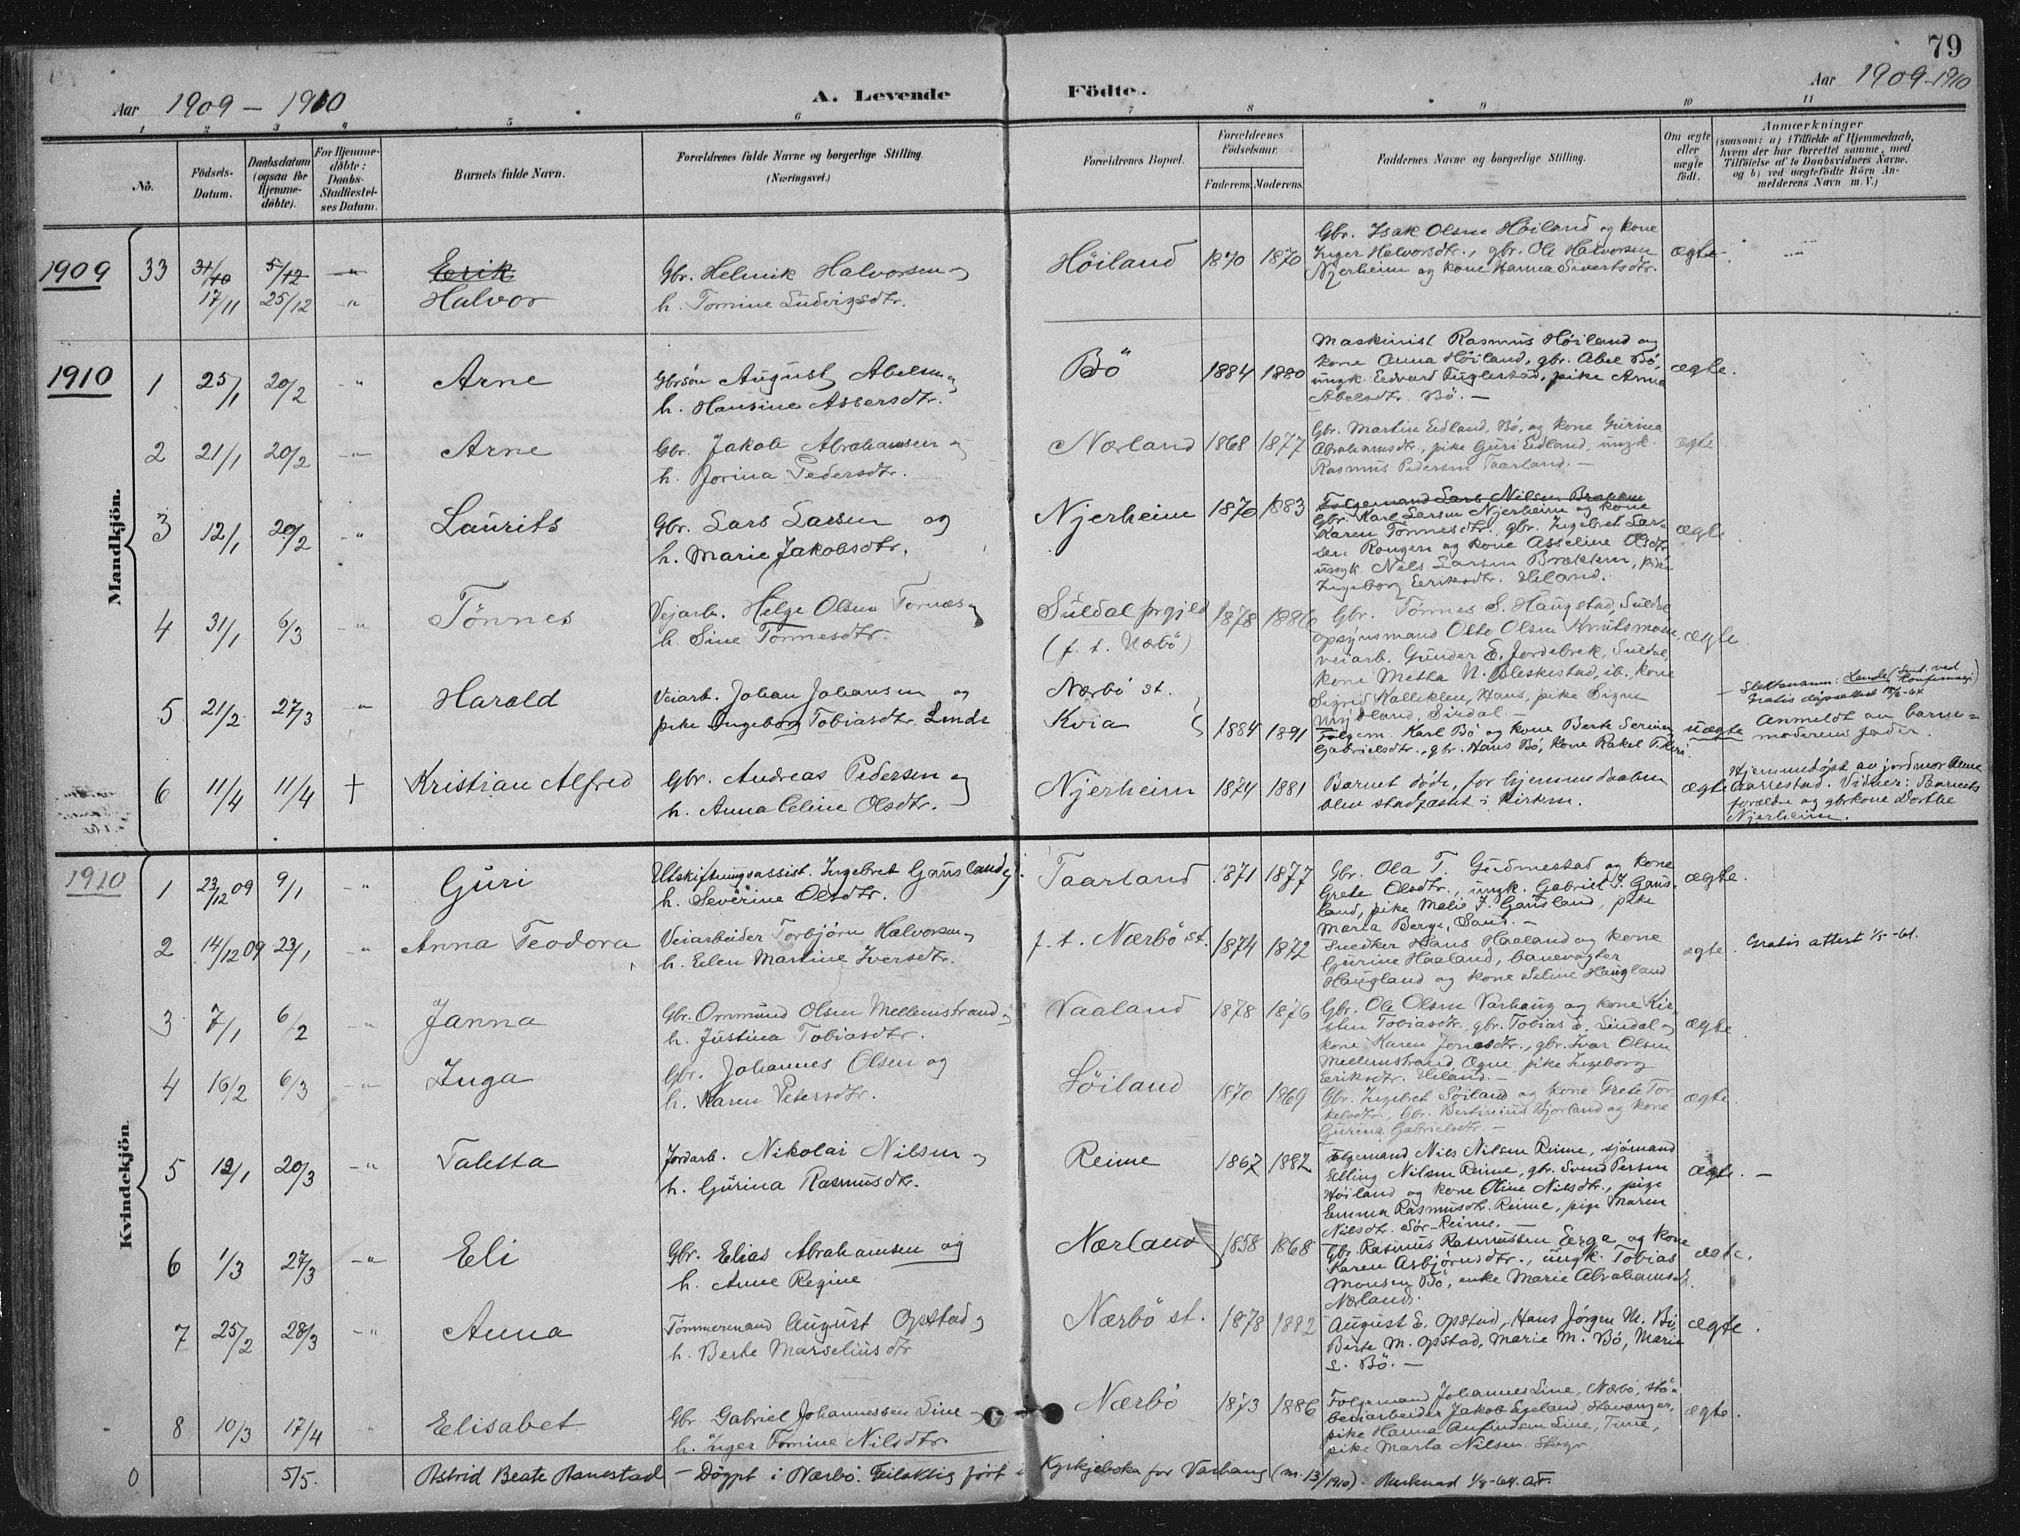 79
Aar 1909 - 1910
A. Levende Födte.
Aar 1909-1910
1 2 3 4 5 6 7 8 9 10 11
No.
Födsels-Datum.
Daabsdatum (ogsaa for Hjemme-döbte).
For Hjemme-döbte: Daabs-Stadfæstel-ses Datum.
Barnets fulde Navn.
Forældrenes fulde Navne og borgerlige Stilling.
(Næringsvei.)
Forældrenes Bopæl.
Forældrenes Födselsaar.
Faderens. Moderens.
Faddernes Navne og borgerlige Stilling.
Om ægte eller uægte födt.
Anmærkninger
(saasom: a) i Tilfælde af Hjemmedaab, hvem der har forrettet samme, med Tilföielse af to Daabsvidners Navne, og b) ved uægtefödte Börn An-melderens Navn m. V.)
Mandkjön.
1909 33 31/10 5/12 Eerik
17/11 25/12 Halvor
Gbr. Helmik Halvorsen og
h. Tomine Ludvigsdtr.
Höiland 1870 1870
Gbr. Isak Olsen Höiland og kone
Inger Halvorsdtr., gbr. Ole Halvorsen
Njerheim og kone Hanna Sivertsdtr.
ægte
1910 1 25/1 20/2 Arne
Gbrsön August Abelsen og
h. Hansine Assersdtr.
Bö 1884 1880
Maskinist Rasmus Höiland og
kone Anna Höiland, gbr. Abel Bö,
ungk. Eedvard Fuglestad, pike Anna
Abelsdtr. Bö. -
ægte.
2 21/1 20/2 Arne
Gbr. Jakob Abrahamsen og
h. Jorina Pedersdtr.
Nærland 1868 1877
Gbr. Martin Eidland, Bö, og kone Gurina
Abrahamsdtr., pike Guri Eidland, ungk.
Rasmus Pedersen Taarland. -
ægte
3 12/1 20/2 Laurits
Gbr. Lars Larsen og
h. Marie Jakobsdtr.
Njerheim 1870 1883
Folgemand Lars Nilsen
Gbr. Karl Larsen Njerheim og kone
Karen Tönnesdtr., gbr. Ingebret Lar-
sen Rongen og kone Asseline Olsdtr.
ungk. Nils Larsen Brækken, pike
Ingeborg Eeriksdtr. Heland.
ægte
4 31/1 6/3 Tönnes
Veiarb. Helge Olsen Tornæs og
h. Sine Tönnesdtr.
Suldal prgjeld
(f. t. Nærbö)
1878 1886
Gbr. Tönnes S. Haugstad, Suldal
opsynsmand Otto Olsen Knutsmoen,
veiarb. Gunder E. Jordebrek, Suldal
kone Metha N. Bleskestad, ib. kone
Sigrid Kalleklev, Hans, pike Signe
Mydland, Sirdal. -
ægte
5 21/2 27/3 Harald
Veiarb. Johan Johansen og
pike Ingeborg Tobiasdtr. Lende
Nærbö st.
Kvia
1884 1891
Folgem. Karl Bö og kone Berte Serine
Gabrielsdtr., gbr. Hans Bö, kone Rakel
uægte
Slektsnamn: Lende
Gratis dåpsattest
Anmeldt av barne-
moderens fader.
6 11/4 11/4 + Kristian Alfred
Gbr. Andreas Pedersen og
h. Anna Celine Olsdtr.
Njerheim 1874 1881
Barnet döde, før hjemmedaaben
blev stadfæstet i kirken.
ægte
Hjemmedöpt av jordmor Anne
Garrestad. Vidner: Barnets
forældre og gbrkone Dorthe
Njerheim.
Kvindekjön.
1910 1 23/12 09 9/1 Guri
Utskiftningsassist. Ingebret Gausland og
h. Severine Olsdtr.
Taarland 1871 1877
Gbr. Ola T. Gudmestad og kone
Grete Olsdtr., ungk. Gabriel J. Gaus-
land, pike Malie J. Gausland, pike
Maria Berge, Sand. -
ægte.
2 14/12 09 23/1 Anna Teodora
Veiarbeider Torbjörn Halvorsen og
h. Eelen Martine Iversdtr.
f. t. Nærbö st. 1874 1872
Snedker Hans Haaland og kone
Gurine Haaland, banevogter
Haugland og kone Seline Haugland
ægte.
Gratis attest 1/5-61.
3 7/1 6/2 Janna
Gbr. Ommund Olsen Mellemstrand og
h. Justina Tobiasdtr.
Vaaland 1878 1876
Gbr. Ole Olsen Varhaug og kone Kir-
sten Tobiasdtr., gbr. Tobias E. Lindal og
kone Karen Jonasdtr., gbr. Ivar Olsen
Mellemstrand, Ogne, pike Ingeborg
Eeriksdtr. Heland. -
ægte
4 16/2 6/3 Inga
Gbr. Johannes Olsen og
h. Karen Petersdtr.
Söiland 1870 1869
Gbr. Ingebret Söiland og kone Grete Tor-
kelsdtr., gbr. Bertinius Hjorland og kone
Gurina Gabrielsdtr. -
ægte.
5 12/1 20/3 Taletta
Jordarb. Nikolai Nilsen og
h. Gurina Rasmusdtr.
Reime 1867 1882
Folgemand Niels Nilsen Reime, sjömand
Elling Nilsen Reime, gbr. Svend Persen
Höiland og kone Oline Nilsdtr., pige
Emma Rasmusdt. Reime, pige Maren
Nilsdtr. Sör-Reime. -
ægte. -
6 1/3 27/3 Eli
Gbr. Eelias Abrahamsen og
h. Anne Regine
Nærland 1858 1868
Gbr. Rasmus Rasmussen Eerga og kone
Karen Asbjörnsdtr., ungk. Tobias
Monsen Bö, enke Marie Abrahamsd.
Nærland.
ægte.
7 25/2 28/3 Anna
Tömmermand August Opstad og
h. Berte Marseliusdtr
Nærbö st. 1878 1882
August E. Opstad, Hans Jörgen M. Bö,
Berte M. Opstad, Marie M. Bö, Marie
L. Bö. -
ægte.
8 10/3 17/4 Eelisabet
Gbr. Gabriel Johannessen Line og
h. Inger Tomine Nilsdtr.
Nærbö 1873 1886
Folgemand Johannes Line, Nærbö, stö-
beriarbeider Jakob Egeland, Stavanger,
pike Hanna Line, Time,
pike Marta Nilsen Stvgr
ægte.
0 5/5. Astrid Beate Aanestad - Döypt i Nærbö. Feilaktig fört i Kyrkjeboka for Varhaug (nr. 13/1910). Merknad 1/8-64.